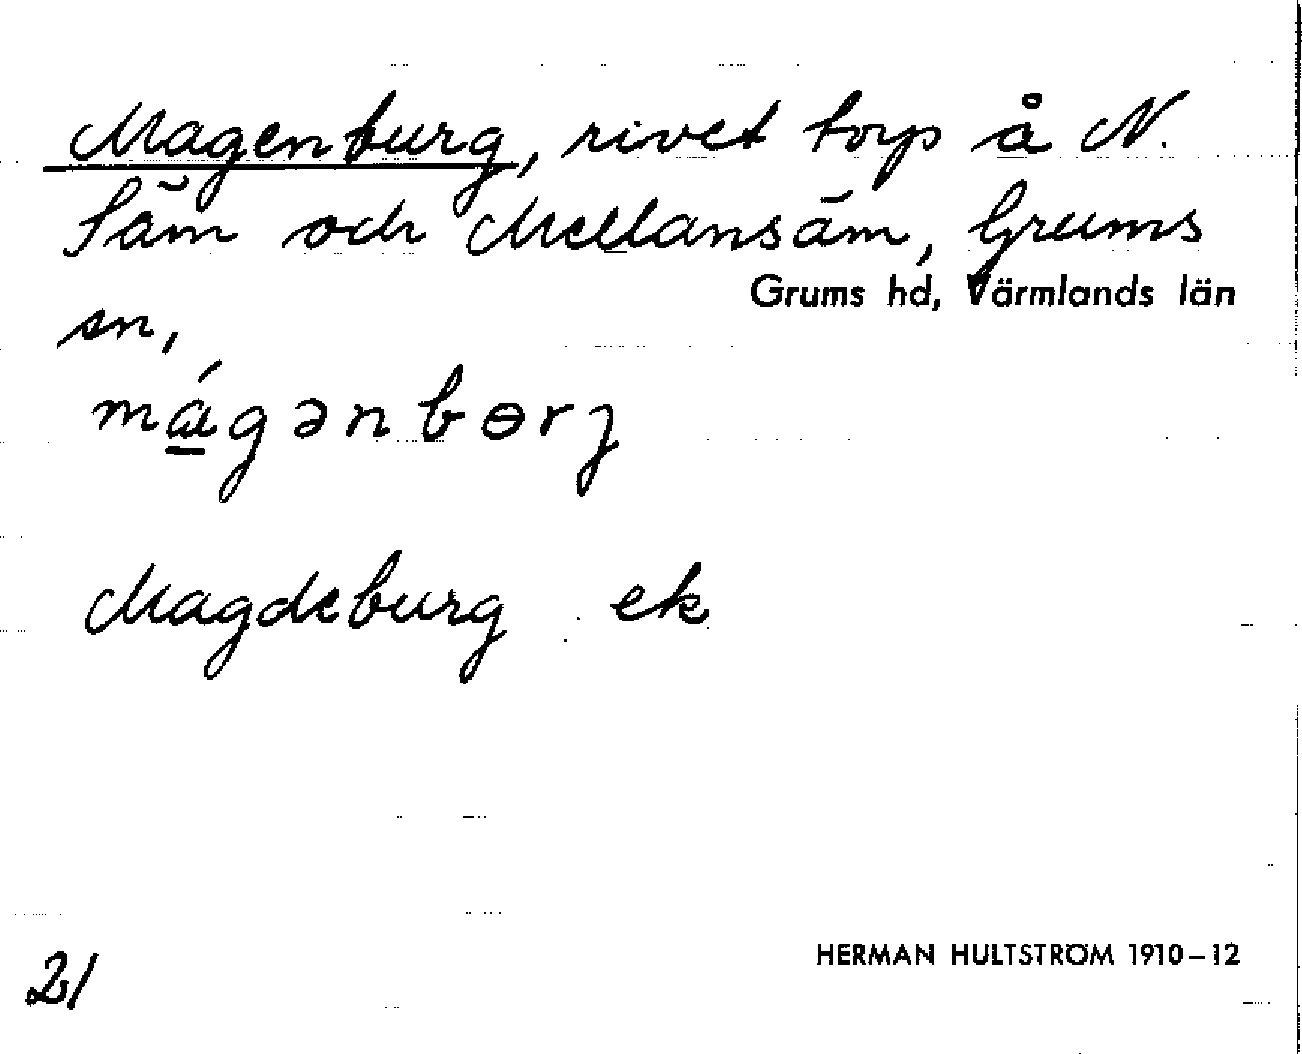 Magenburg, rivet torp å N.
Säm och Mellansäm, Grums
Grums hd, Värmlands län
sn,
mágənbɵrj
Magdeburg ek
HERMAN HULTSTRÖM 1910–12
21